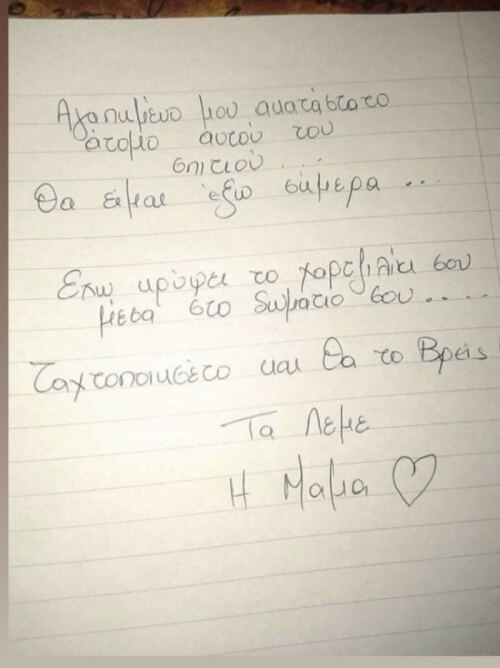 Αγαπημένο μου ακατάστατο
άτομο αυτού του
σπιτιού ....
Θα είμαι έξω σήμερα ...
Εχω κρύψει το χαρτζιλίκι σου
μέσα στο δωματιο σου .....
Ταχτοποιησέτο και θα το Βρείς
Τα Λεμε
Η Μαμα ♡